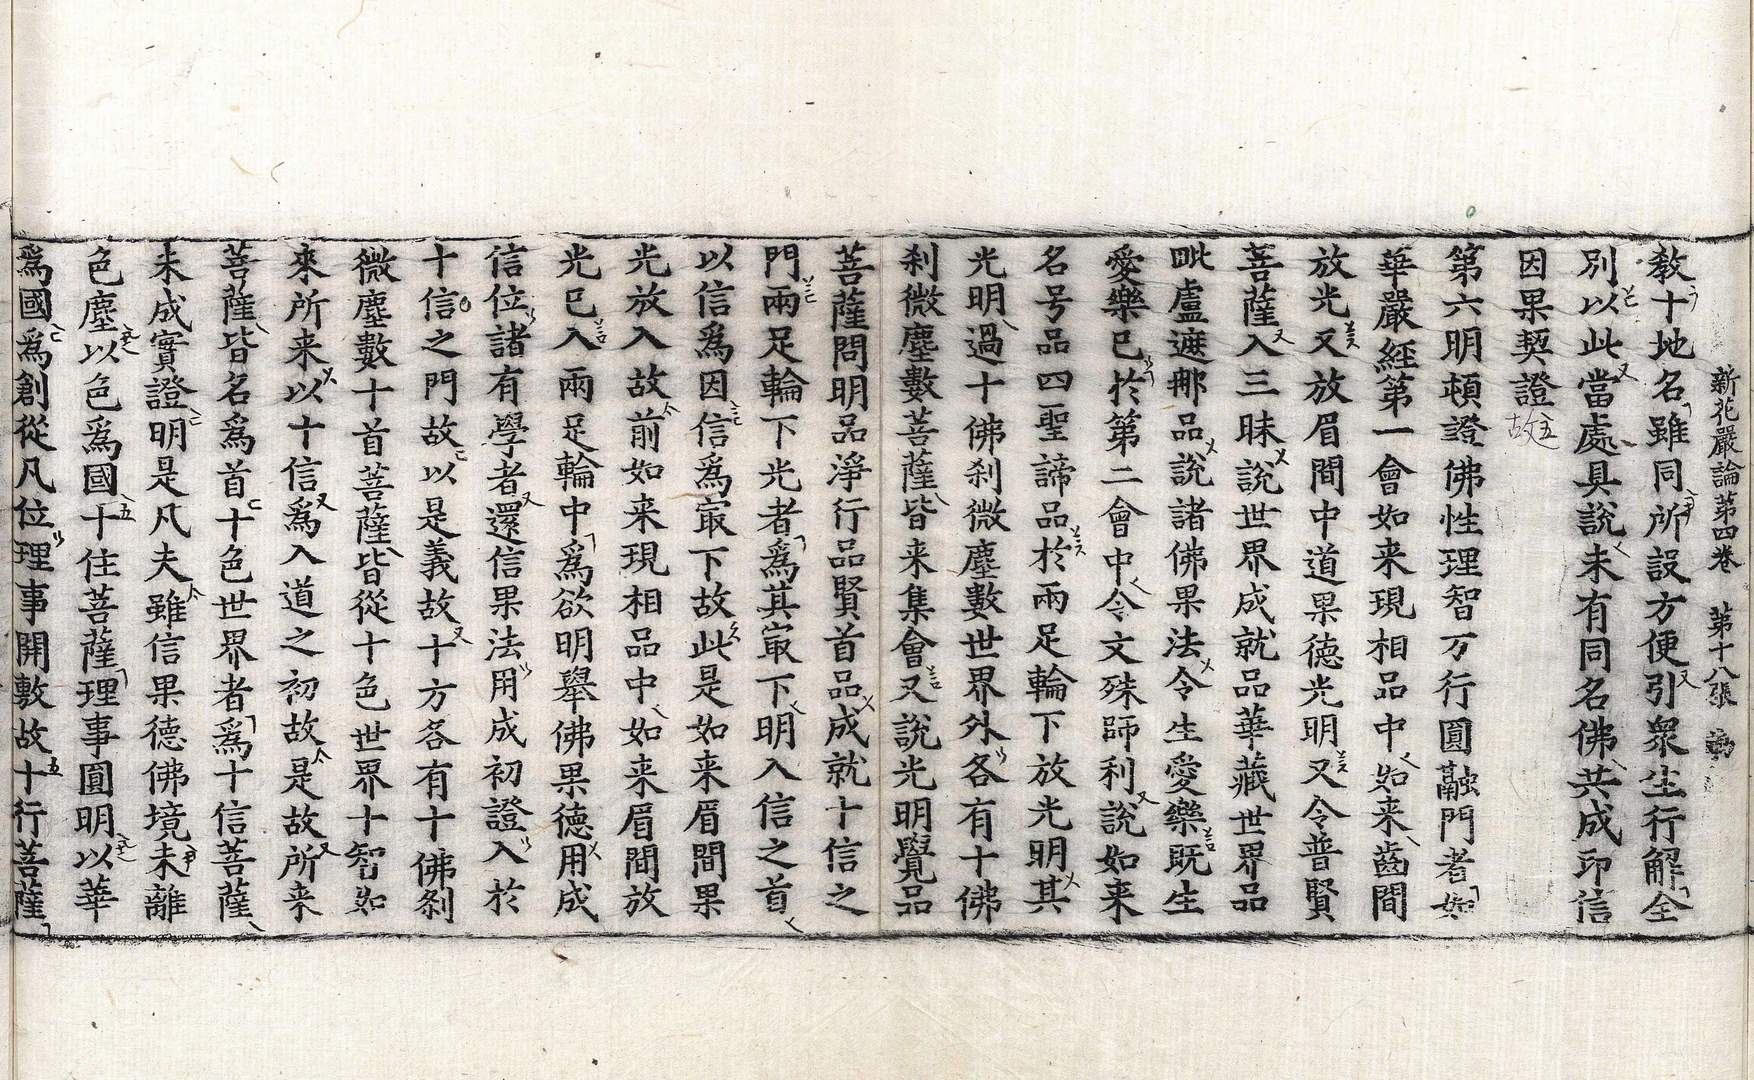 新花嚴論第四卷 第十八張
教十地名雖同所設方便引衆生行解全
別以此當處具說未有同名佛共成印信
因果契證故
第六明頓證佛性理智万行圓融門者如
華嚴經第一會如来現相品中如来齒間
放光又放眉間中道果德光明又令普賢
菩薩入三昧說世界成就品華藏世界品
毗盧遮那品說諸佛果法令生愛樂既生
愛樂已於第二會中令文殊師利說如来
名号品四聖諦品於兩足輪下放光明其
光明過十佛刹微塵數世界外各有十佛
刹微塵數菩薩皆来集會又說光明覺品
菩薩問明品淨行品賢首品成就十信之
門兩足輪下光者爲其㝡下明入信之首
以信爲因信爲㝡下故此是如来眉間果
光放入故前如来現相品中如来眉間放
光已入兩足輪中爲欲明舉佛果德用成
信位諸有學者還信果法用成初證入於
十信之門故以是義故十方各有十佛刹
微塵數十首菩薩皆從十色世界十智如
來所来以十信爲入道之初故是故所来
菩薩皆名爲首十色世界者爲十信菩薩
未成實證明是凡夫雖信果德佛境未離
色塵以色爲國十住菩薩理事圓明以華
爲國爲創從凡位理事開敷故十行菩薩